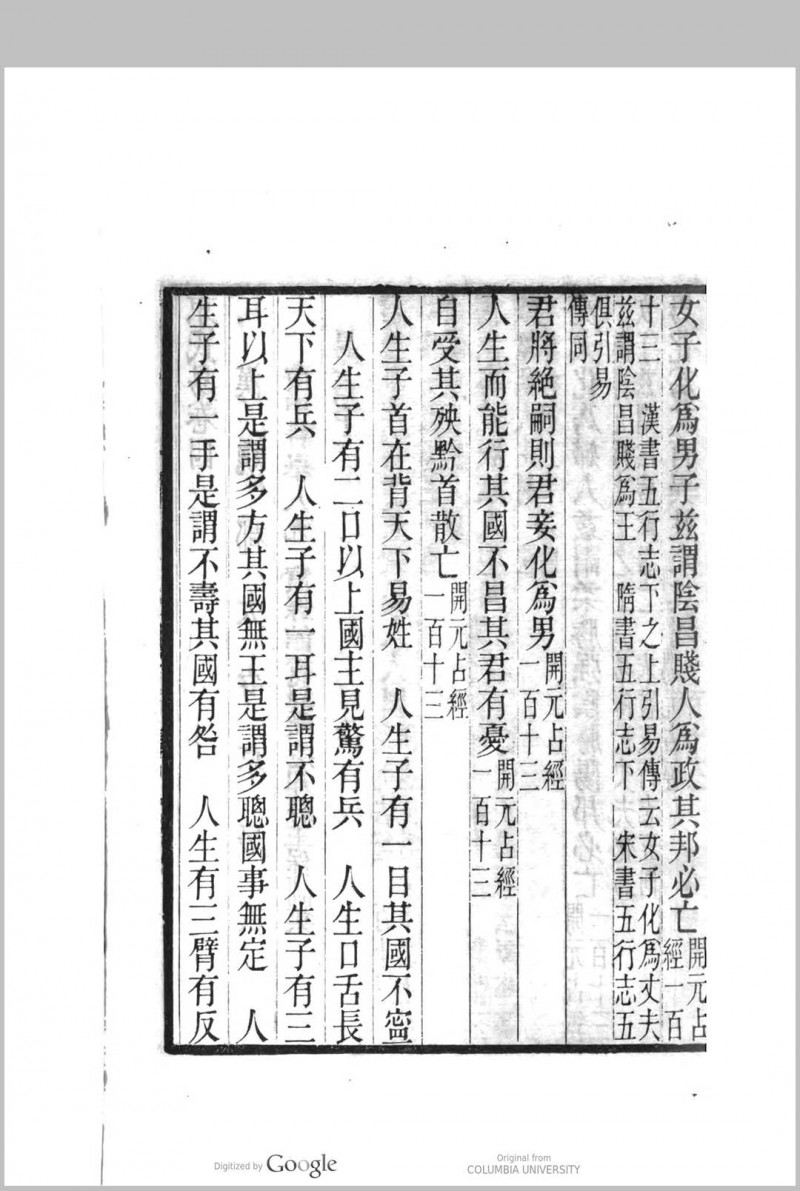 女子化爲男子茲謂陰昌賤人爲政其邦必亡開元占經一百
十三　漢書五行志下之上引易傳云女子化爲丈夫
茲謂陰昌賤爲王　隋書五行志下　宋書五行志五
俱引易
傳同
君將絕嗣則君妾化爲男開元占經一百十三
人生而能行其國不昌其君有憂開元占經一百十三
自受其殃黔首散亡開元占經一百十三
人生子首在背天下易姓　人生子有一目其國不寍
　人生子有二口以上國主見驚有兵　人生口舌長
天下有兵　人生子有一耳是謂不聰　人生子有三
耳以上是謂多方其國無王是謂多聰國事無定　人
生子有一手是謂不壽其國有咎　人生有三臂有反
Digitized by Google
Original from
COLUMBIA UNIVERSITY